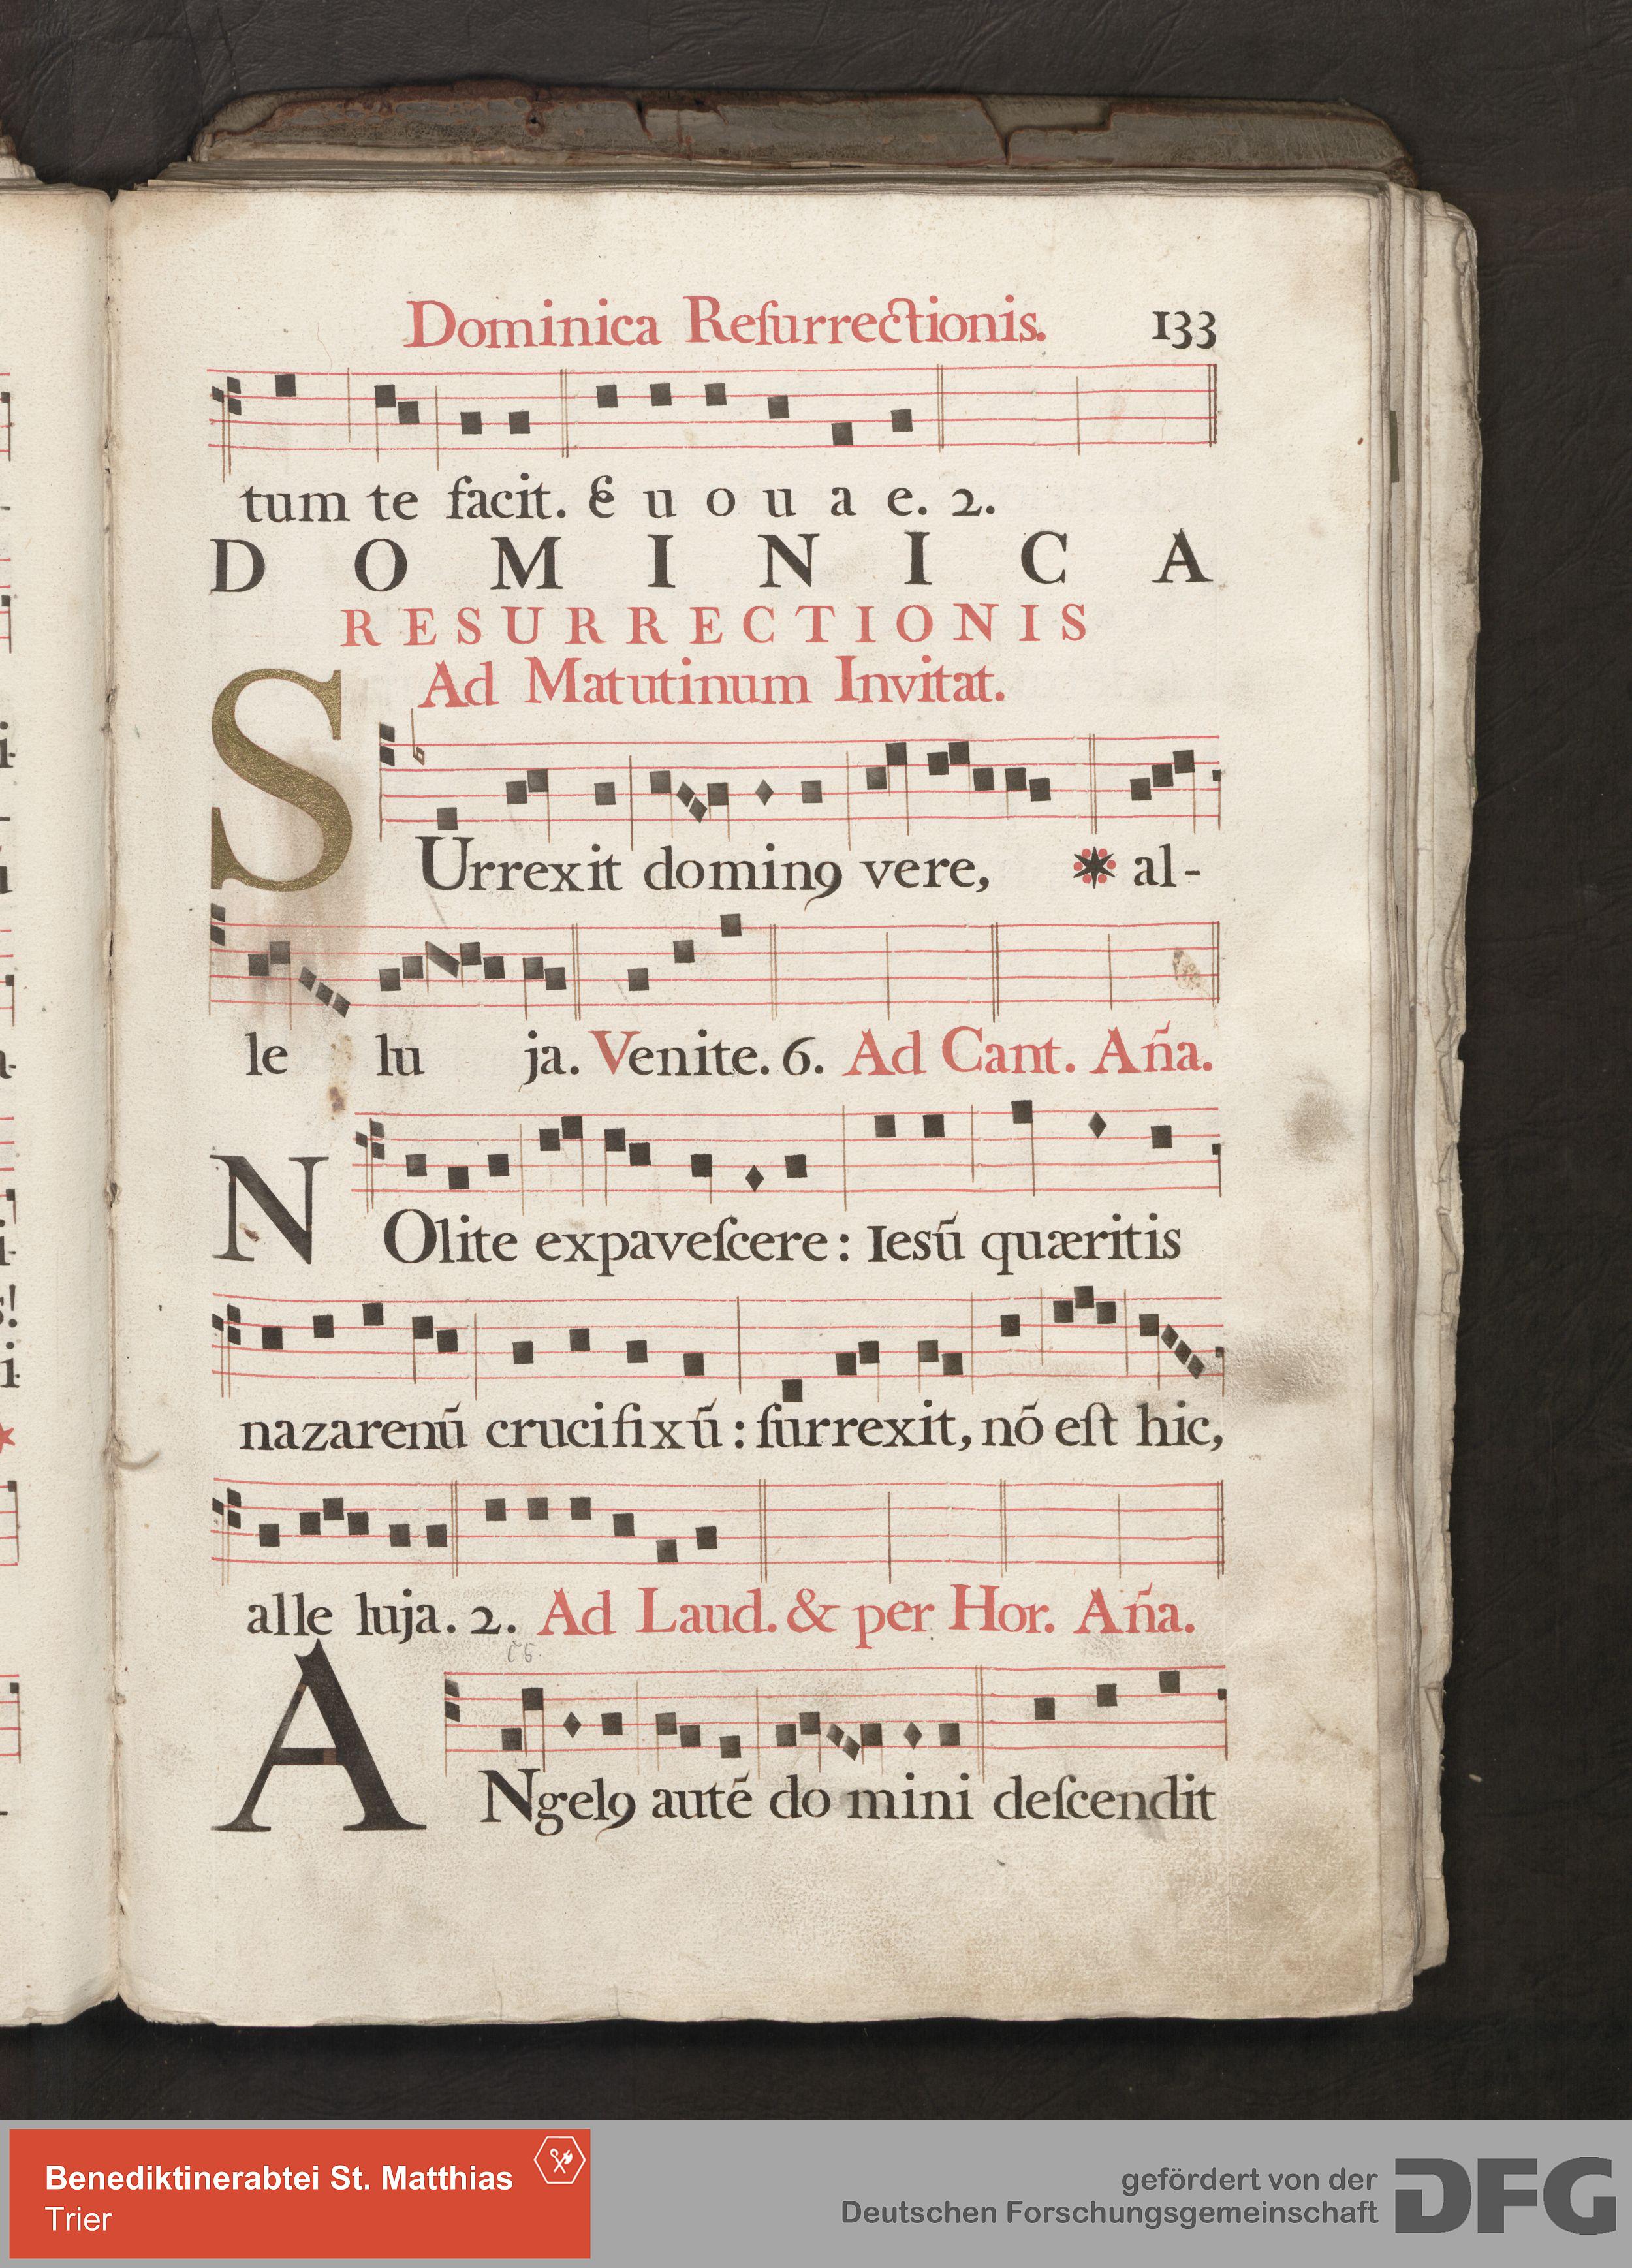 Dominica Reſurrectionis. 133
tum te facit. E u o u a e. 2.
D O M I N I C A
RESURRECTIONIS
Ad Matutinum Invitat.
SUrrexit dominꝯ vere, * al-
le lu ja. Venite. 6. Ad Cant. Aña.
NOlite expaveſcere: Iesũ quæritis
nazarenũ crucifixũ: ſurrexit, nõ eſt hic,
alle luja. 2. Ad Laud. & per Hor. Aña.
ANgelꝯ autẽ do mini deſcendit
Benediktinerabtei St. Matthias
Trier
gefördert von der
Deutschen Forschungsgemeinschaft
DFG